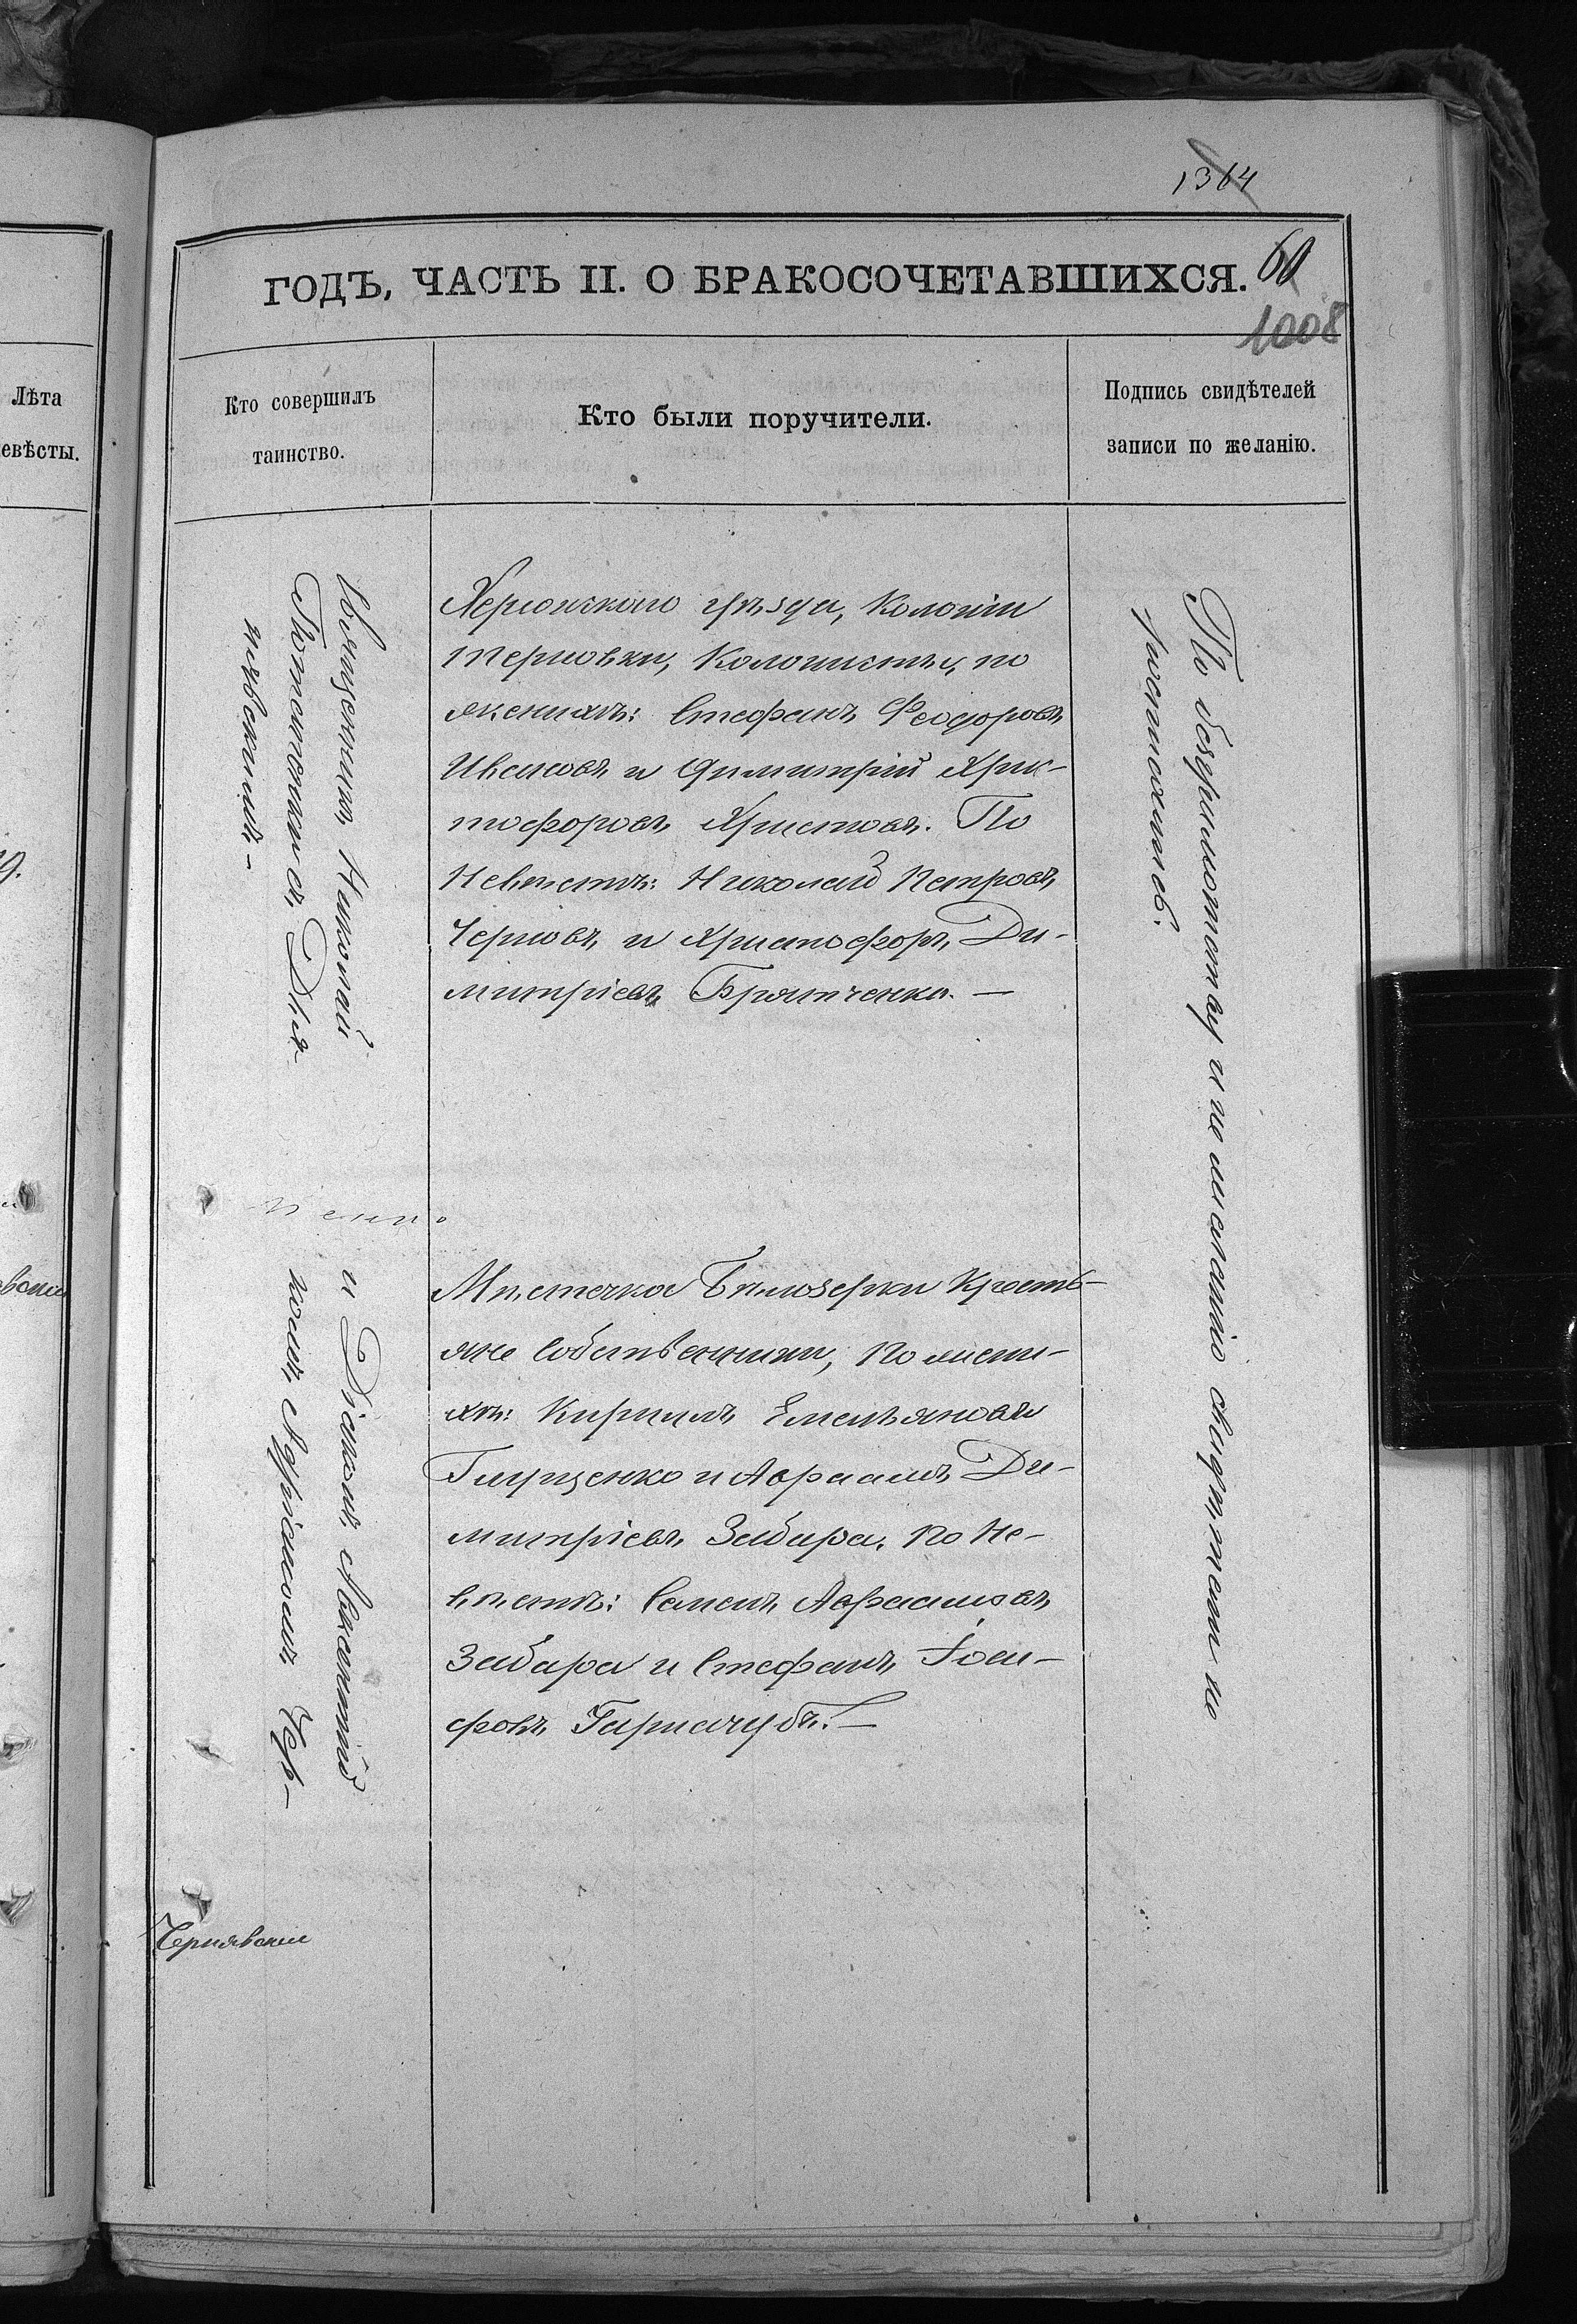 1364
ГОДЪ, ЧАСТЬ II. О БРАКОСОЧЕТАВШИХСЯ.
60
1008
Лѣта
евѣсты.
Кто совершилъ
таинство.
Кто были поручители.
Подпись свидѣтелей
записи по желанію.
Священникъ Николай
съ Дья-
Херсонскаго уѣзда, Колоніи
Терновки, Колонисты, по
женихѣ: Стефанъ Феодоровъ
Ивановъ и Димитрій Хрис-
тофоровъ Христовъ. По
Невѣстѣ: Николай Петровъ
Черновъ и Христофоръ Ди-
митріевъ Братченко. —
По безграмотству и нежеланію свидѣтели не
росписались.
и Діаконъ
Мѣстечка Бѣлозерки Кресть-
яне собственники, По жени-
хѣ: Кирилъ Емельяновъ
Глущенко и Авраамъ Ди-
митріевъ Забара, По Не-
вѣстѣ: Семенъ Авраамовъ
Забара и Стефанъ Іоси-
фовъ Гармачубъ. —
Чернявски